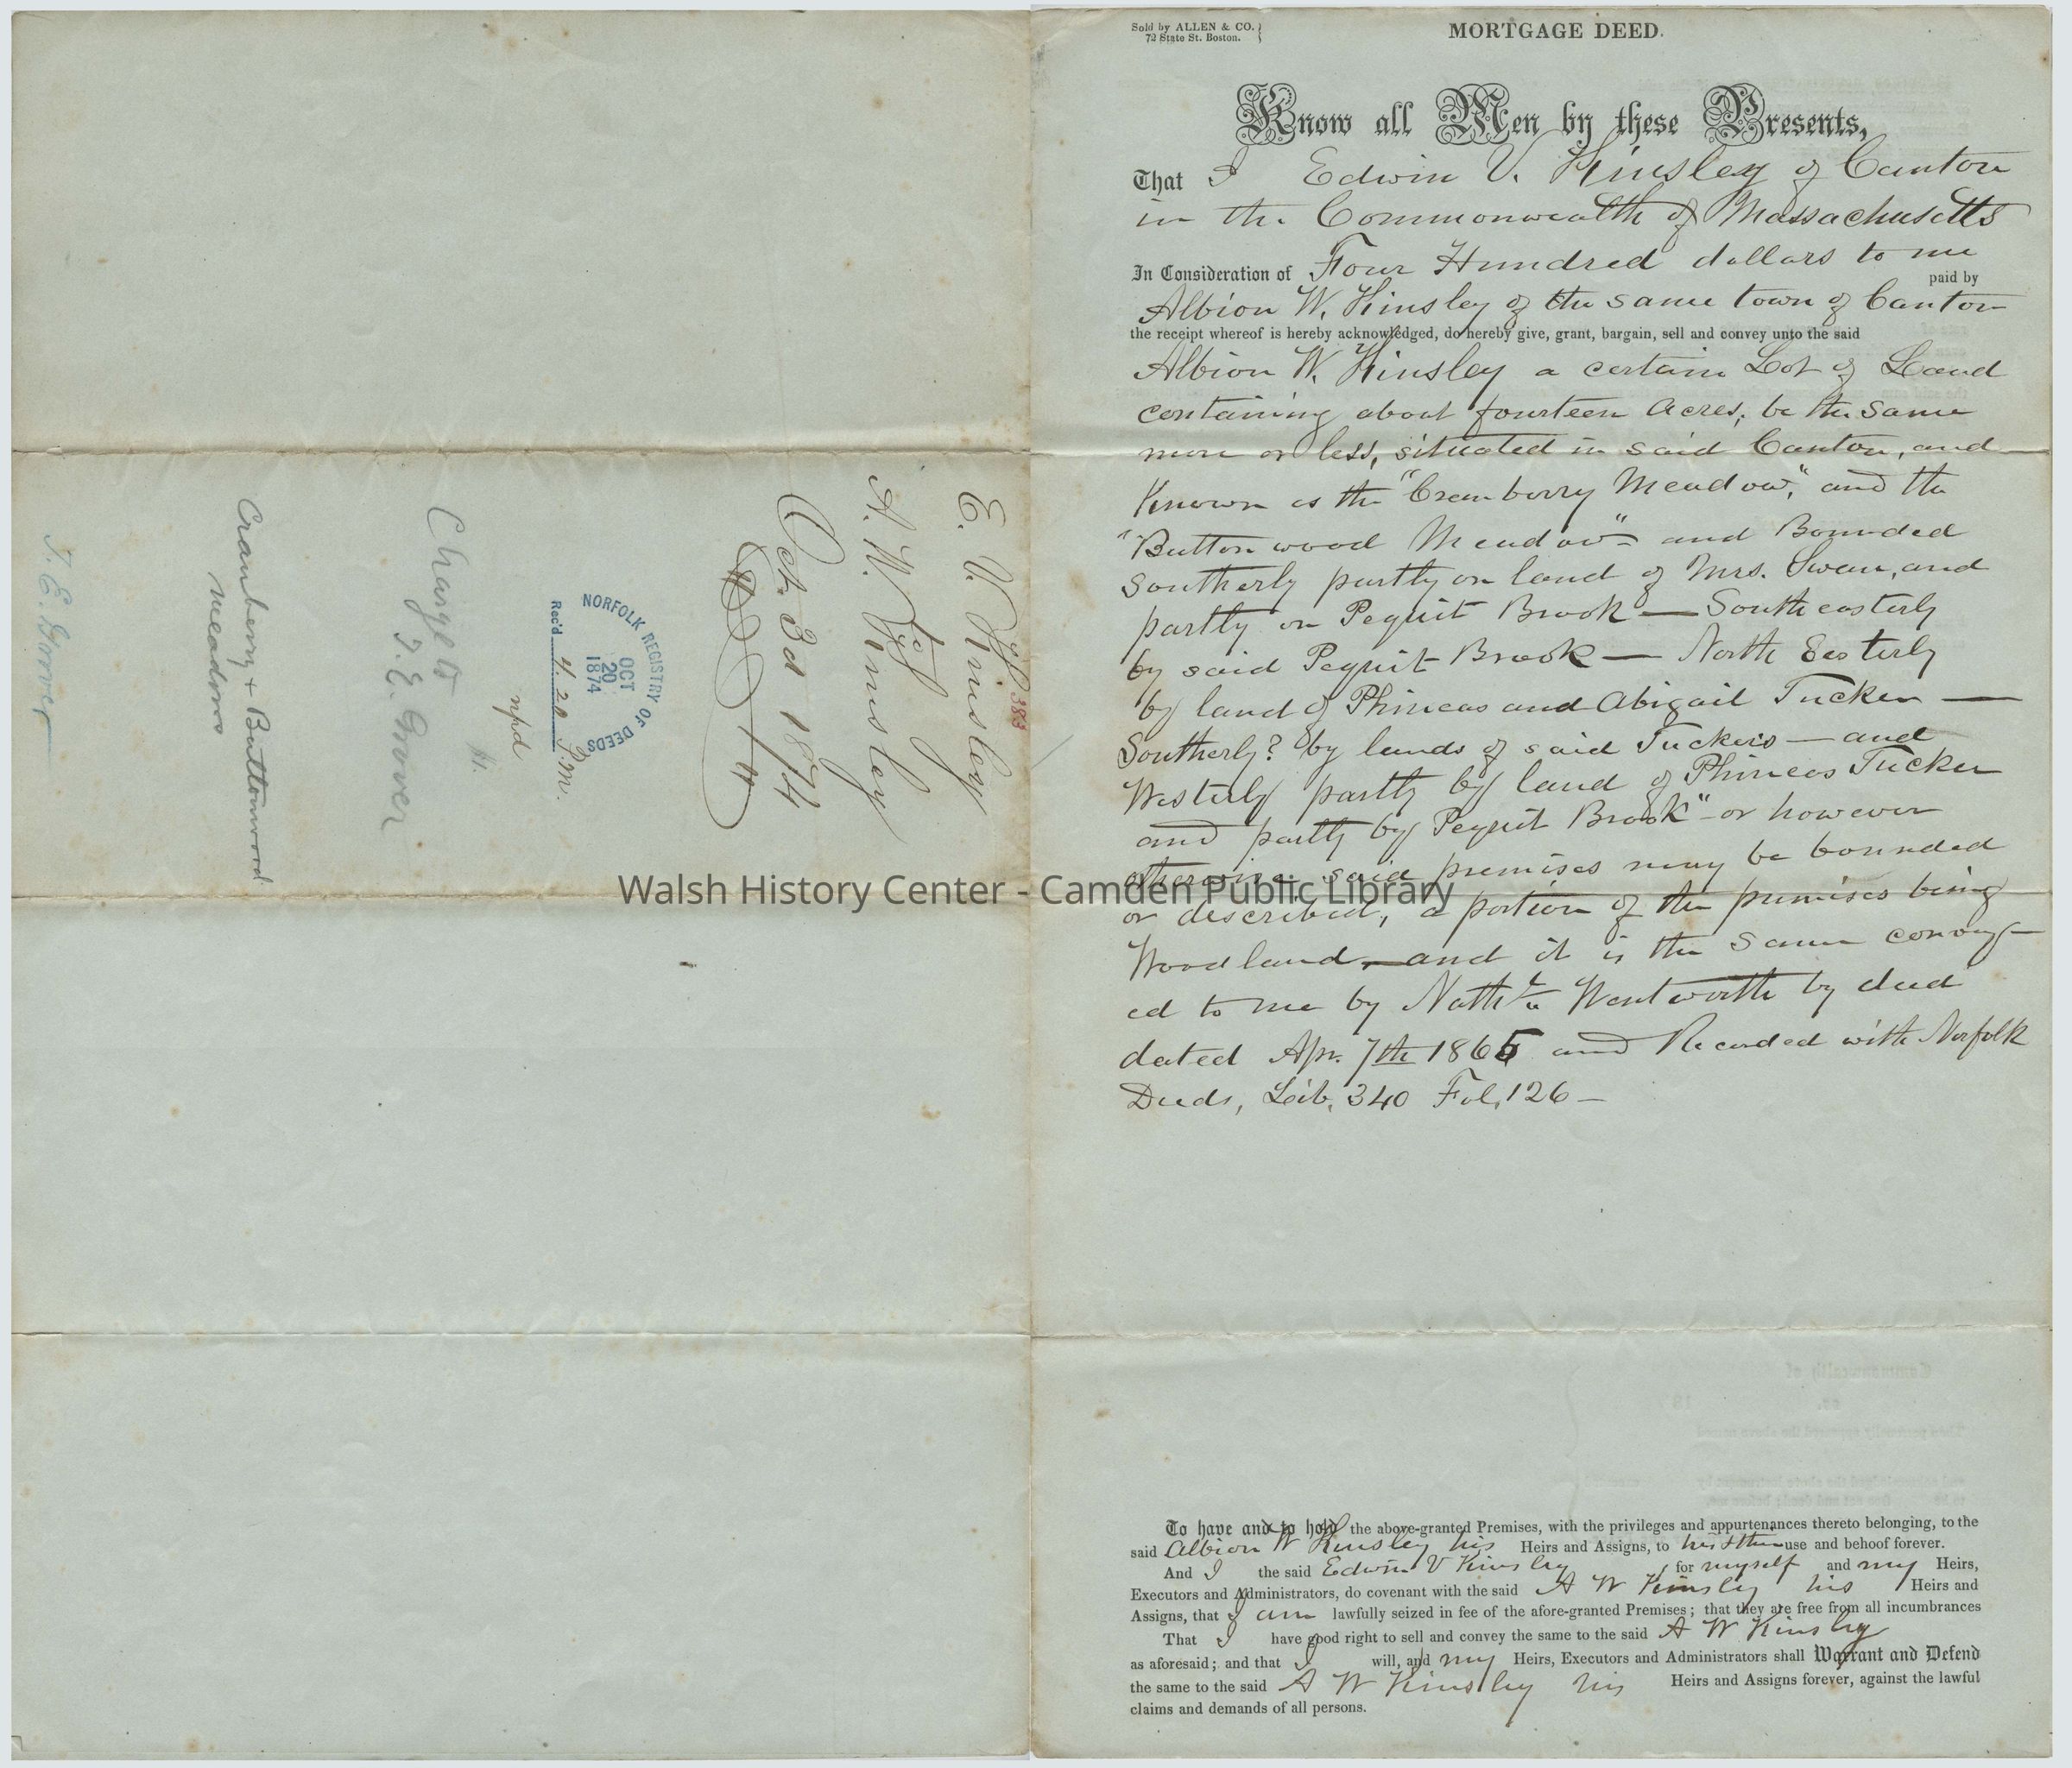 E. V. Kinsley
to
A. W. Kinsley
Oct. 3d 1874
383
NORFOLK REGISTRY OF DEEDS
OCT
20
1874
Rec'd 4. 20 P.M.
npd
Charge to
T. E. Grover
Cranberry + Buttonwood
Meadows
T. E. Grover
Sold by ALLEN & CO.
72 State St. Boston.
MORTGAGE DEED.
Know all Men by these Presents,
That I Edwin V. Kinsley of Canton
in the Commonwealth of Massachusetts
In Consideration of Four Hundred dollars to me
paid by
Albion W. Kinsley of the same town of Canton
the receipt whereof is hereby acknowledged, do hereby give, grant, bargain, sell and convey unto the said
Albion W. Kinsley a certain Lot of Land
containing about fourteen Acres, be the same
more or less, situated in said Canton, and
Known as the "Cranberry Meadow," and the
"Buttonwood Meadow" and Bounded
Southerly partly on land of Mrs. Swan, and
partly on Pequit Brook — Southeasterly
by said Pequit Brook — North Easterly
by land of Phineas and Abigail Tucker —
Southerly? by lands of said Tuckers — and
Westerly partly by land of Phineas Tucker
and partly by Pequit Brook" - or however
otherwise said premises may be bounded
or described, a portion of the premises being
Woodland, — and it is the same convey-
ed to me by Nathl. Wentworth by deed
dated Apr. 7th 1865 and Recorded with Norfolk
Deeds, Lib. 340 Fol. 126 —
To have and to hold the above-granted Premises, with the privileges and appurtenances thereto belonging, to the
said Albion W Kinsley his Heirs and Assigns, to his & their use and behoof forever.
And I the said Edwin V Kinsley, for myself and my Heirs,
Executors and Administrators, do covenant with the said A W Kinsley his Heirs and
Assigns, that I am lawfully seized in fee of the afore-granted Premises; that they are free from all incumbrances
That I have good right to sell and convey the same to the said A W Kinsley
as aforesaid; and that I will, and my Heirs, Executors and Administrators shall Warrant and Defend
the same to the said A W Kinsley his Heirs and Assigns forever, against the lawful
claims and demands of all persons.
Walsh History Center - Camden Public Library